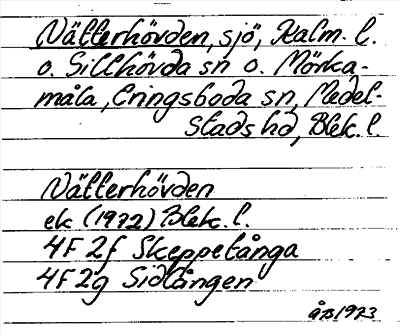 Nätterhövden, sjö, Kalm. l.
o. Sillhövda sn o. Mörka-
måla, Eringsboda sn, Medel-
stads hd, Blek. l.
Nätterhövden
ek (1972) Blek. l.
4F 2f Skeppetånga
4F 2g Sidlången